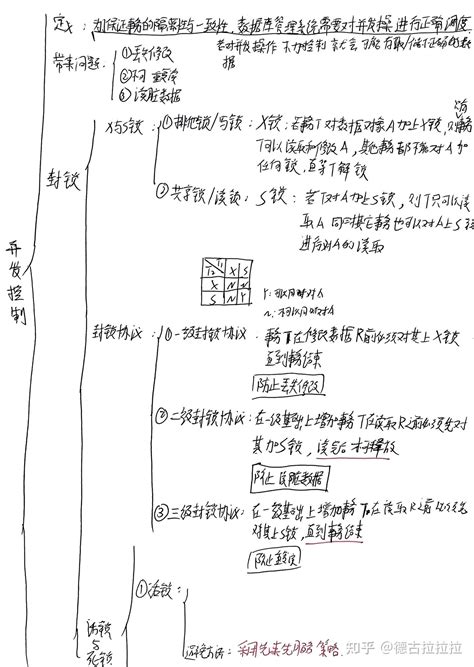 定义：为保证事务的隔离性与一致性，数据库管理系统需要对并发操作进行正常调度
若对并发操作不加控制就会可能存取/储存不正确的数据
并发控制
带来问题
①丢失修改
②不可重复读
③读脏数据
封锁
X与S锁
①排他锁/写锁：X锁：若事务T对数据对象A加上X锁，则事务
T可以读取和修改A，其他事务都不能对A加
任何锁，直等T解锁
②共享锁/读锁：S锁：若T对A加上S锁，则T只可以读
取A 同时其它事务也可以对A上S锁
进行对A的读取
T1 T2 X S
X N N
S N Y
Y：可以同时对A
N：不可以同时对A
封锁协议
①一级封锁协议：事务T在修改数据R前必须对其上X锁
直到事务结束
防止丢失修改
②二级封锁协议：在一级基础上增加事务T在读取R之前必须先对
其加S锁，读完后才可释放
防止读脏数据
③三级封锁协议：在一级基础上增加事务T在读取R之前必须先
对其上S锁，直到事务结束
活锁与死锁
①活锁：
避免方法：采用先来先服务策略
知乎 @德古拉拉拉